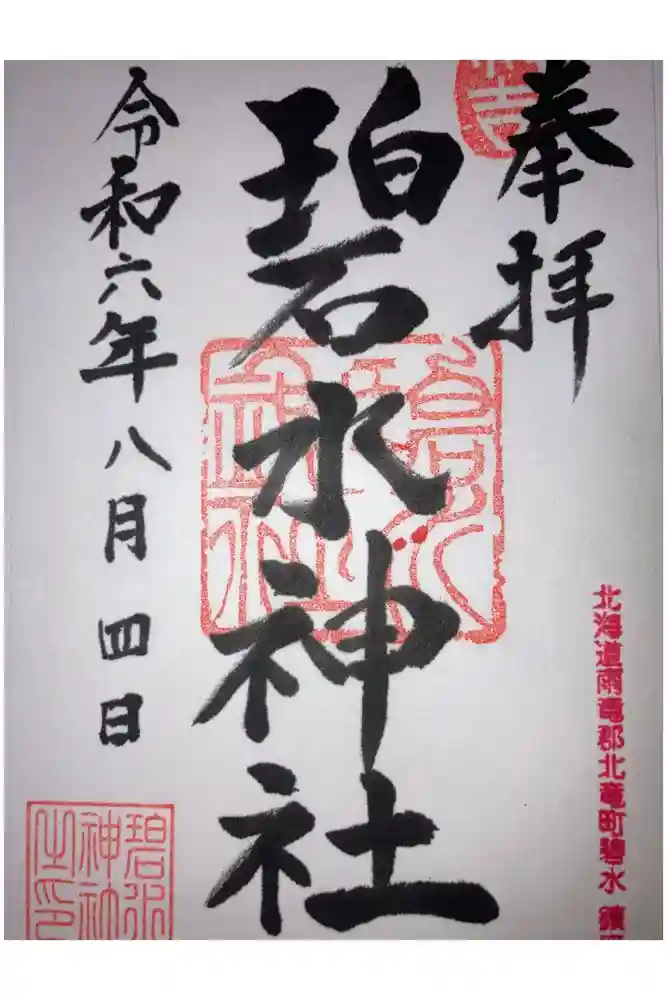 奉拝
北海道雨竜郡北竜町碧水
碧水神社
令和六年八月四日
碧水神社之印